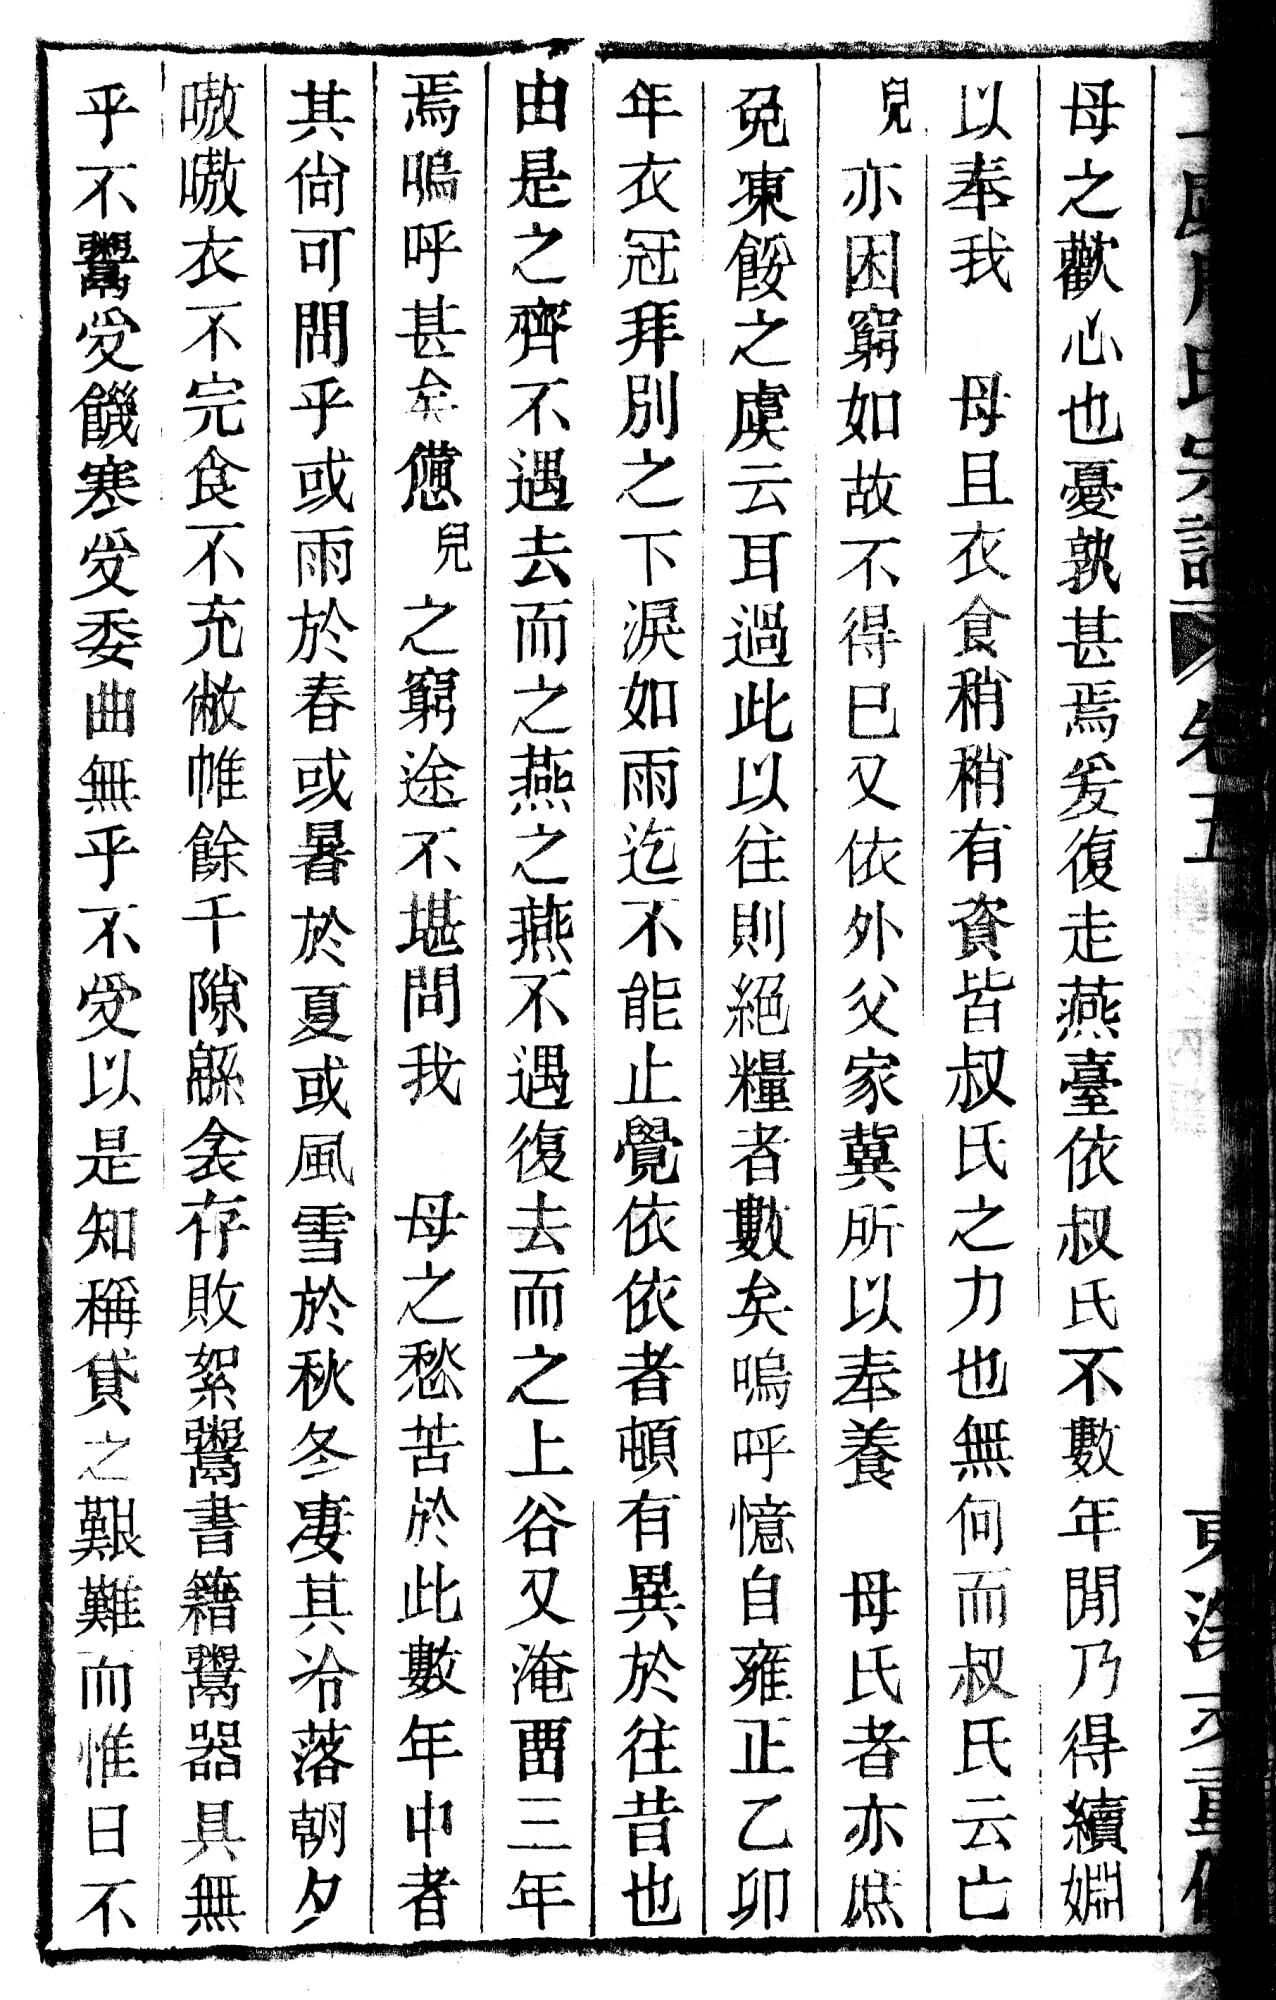 氏宗譜 卷五
母之歡心也憂孰甚焉爰復走燕臺依叔氏不數年閒乃得續婣
以奉我 母且衣食稍稍有資皆叔氏之力也無何而叔氏云亡
兒亦困窮如故不得已又依外父家冀所以奉養 母氏者亦庶
免凍餒之虞云耳過此以往則絕糧者數矣嗚呼憶自雍正乙卯
年衣冠拜別之下淚如雨迄不能止覺依依者頓有異於往昔也
由是之齊不遇去而之燕之燕不遇復去而之上谷又淹畱三年
焉嗚呼甚矣憊兒之窮途不堪問我 母之愁苦於此數年中者
其尙可問乎或雨於春或暑於夏或風雪於秋冬凄其冷落朝夕
嗷嗷衣不完食不充敝帷餘千隙緜衾存敗絮鬻書籍鬻器具無
乎不鬻受饑寒受委曲無乎不受以是知稱貸之艱難而惟日不